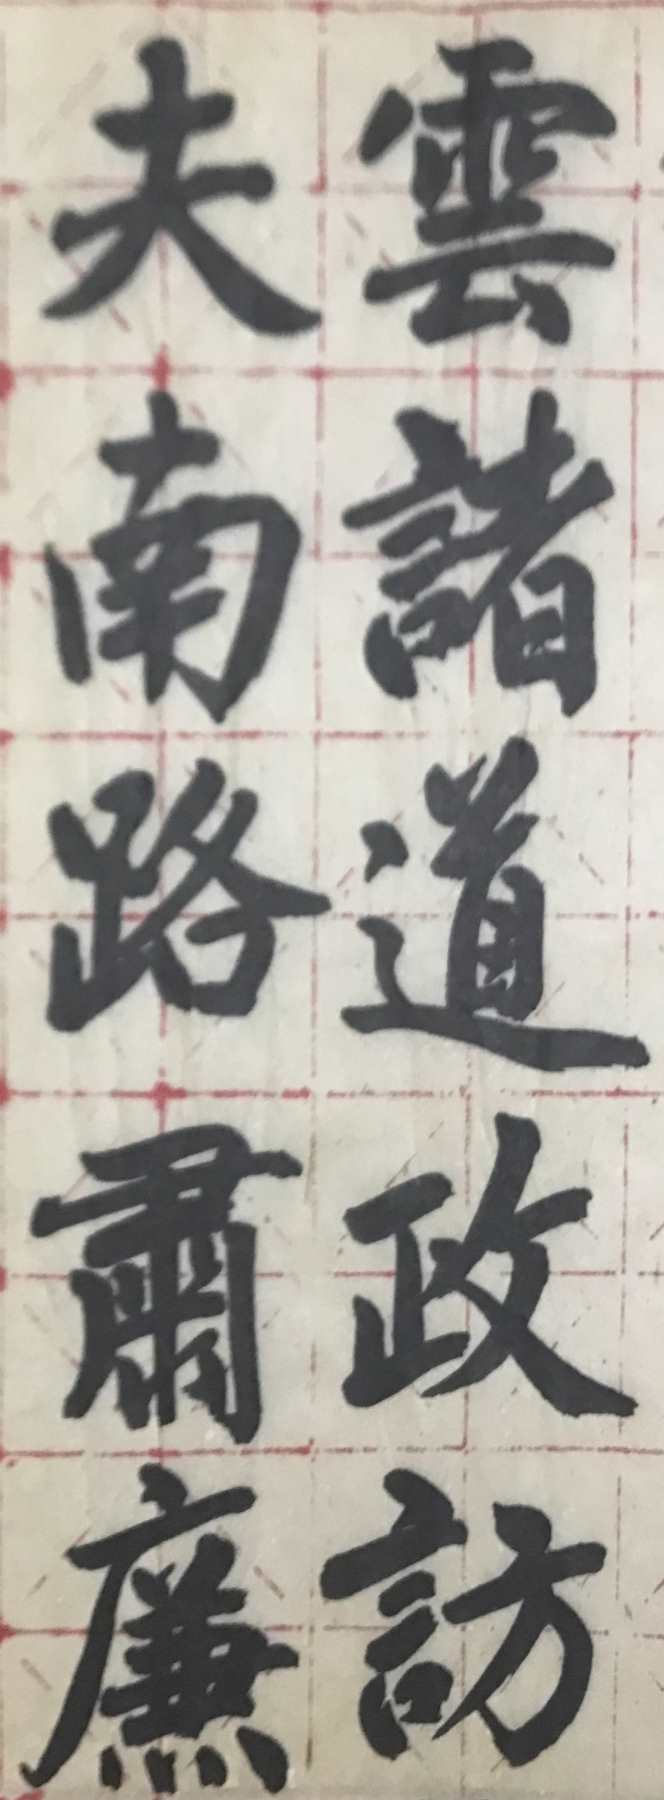 雲諸道政訪
夫南路肅廉